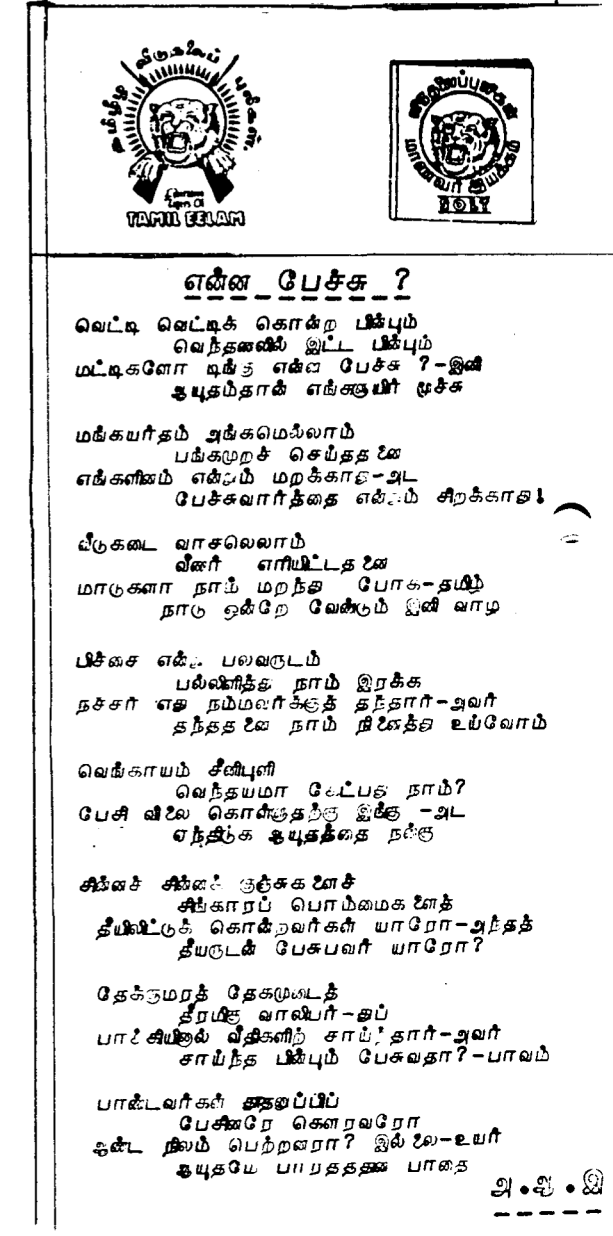 தமிழீழ விடுதலைப் புலிகள்
TAMIL EELAM
விடுதலைப்புலிகள்
மாணவர் இயக்கம்
என்ன பேச்சு ?
வெட்டி வெட்டிக் கொன்ற பின்பும்
வெந்தணலில் இட்ட பின்பும்
மட்டிகளோ டிங்கு என்ன பேச்சு ?-இனி
ஆயுதம்தான் எங்களுயிர் மூச்சு
மங்கயர்தம் அங்கமெல்லாம்
பங்கமுறச் செய்ததனை
எங்களினம் என்றும் மறக்காது-அட
பேச்சுவார்த்தை என்றும் சிறக்காது!
வீடுகடை வாசலெலாம்
வீணர் எரியிட்டதனை
மாடுகளா நாம் மறந்து போக-தமிழ்
நாடு ஒன்றே வேண்டும் இனி வாழ
பிச்சை என்று பலவருடம்
பல்லிளித்து நாம் இரக்க
நச்சர் எது நம்மவர்க்குத் தந்தார்-அவர்
தந்ததனை நாம் நினைத்து உய்வோம்
வெங்காயம் சீனிபுளி
வெந்தயமா கேட்பது நாம்?
பேசி விலை கொள்ளுதற்கு இங்கு -அட
ஏந்திடுக ஆயுதத்தை நன்கு
சின்னச் சின்னக் குஞ்சுகளைச்
சிங்காரப் பொம்மைகளைத்
தீயிலிட்டுக் கொன்றவர்கள் யாரோ-அந்தத்
தீயருடன் பேசுபவர் யாரோ?
தேக்குமரத் தேகமுடைத்
தீரமிகு வாலிபர்-துப்
பாக்கியினால் வீதிகளிற் சாய்ந்தார்-அவர்
சாய்ந்த பின்பும் பேசுவதா?-பாவம்
பாண்டவர்கள் தூதனுப்பிப்
பேசினரே கௌரவரோ
ஆண்ட நிலம் பெற்றனரா? இல்லை-உயர்
ஆயுதமே பாரதத்தின் பாதை
அ.ஆ.இ